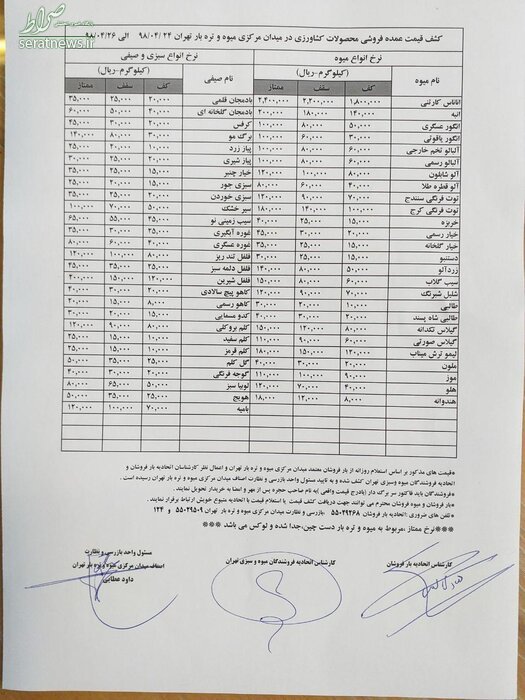 صراط
پایگاه خبری تحلیلی
seratnews.ir
کشف قیمت عمده فروشی محصولات کشاورزی در میدان مرکزی میوه و تره بار تهران ۹۸/۰۴/۲۴ الی ۹۸/۰۴/۲۶
نرخ انواع میوه نرخ انواع سبزی و صیفی
نام میوه (کیلوگرم-ریال) نام صیفی (کیلوگرم-ریال)
کف سقف ممتاز کف سقف ممتاز
آناناس کارتنی ۱,۸۰۰,۰۰۰ ۲,۲۰۰,۰۰۰ ۲,۴۰۰,۰۰۰ بادمجان قلمی ۲۰,۰۰۰ ۲۵,۰۰۰ ۳۵,۰۰۰
انبه ۱۴۰,۰۰۰ ۱۸۰,۰۰۰ ۲۰۰,۰۰۰ بادمجان گلخانه ای ۲۰,۰۰۰ ۵۰,۰۰۰ ۶۰,۰۰۰
انگور عسگری ۵۰,۰۰۰ ۸۰,۰۰۰ ۱۰۰,۰۰۰ کرفس ۲۰,۰۰۰ ۳۰,۰۰۰ ۴۵,۰۰۰
انگور یاقوتی ۳۰,۰۰۰ ۶۰,۰۰۰ ۱۰۰,۰۰۰ برگ مو ۳۰,۰۰۰ ۸۰,۰۰۰ ۱۴۰,۰۰۰
آلبالو تخم خارجی ۶۰,۰۰۰ ۸۰,۰۰۰ ۱۰۰,۰۰۰ پیاز زرد ۱۰,۰۰۰ ۲۰,۰۰۰ ۲۵,۰۰۰
آلبالو رسمی ۶۰,۰۰۰ ۸۰,۰۰۰ ۱۰۰,۰۰۰ پیاز شیری ۲۰,۰۰۰ ۲۵,۰۰۰ ۳۰,۰۰۰
آلو شابلون ۸۰,۰۰۰ ۱۰۰,۰۰۰ ۱۲۰,۰۰۰ خیار چنبر ۱۵,۰۰۰ ۲۰,۰۰۰ ۳۵,۰۰۰
آلو قطره طلا ۴۰,۰۰۰ ۶۰,۰۰۰ ۸۰,۰۰۰ سبزی جور ۱۵,۰۰۰ ۲۰,۰۰۰ ۲۵,۰۰۰
توت فرنگی سنندج ۷۰,۰۰۰ ۹۰,۰۰۰ ۱۲۰,۰۰۰ سبزی خوردن ۱۵,۰۰۰ ۲۰,۰۰۰ ۳۵,۰۰۰
توت فرنگی کرج ۱۰۰,۰۰۰ ۱۴۰,۰۰۰ ۱۸۰,۰۰۰ سیر خشک ۵۰,۰۰۰ ۷۰,۰۰۰ ۱۰۰,۰۰۰
خربزه ۱۵,۰۰۰ ۲۵,۰۰۰ ۴۰,۰۰۰ سیب زمینی نو ۴۵,۰۰۰ ۵۵,۰۰۰ ۶۵,۰۰۰
خیار رسمی ۲۰,۰۰۰ ۳۰,۰۰۰ ۴۵,۰۰۰ غوره آبگیری ۲۵,۰۰۰ ۳۰,۰۰۰ ۳۵,۰۰۰
خیار گلخانه ۱۵,۰۰۰ ۲۵,۰۰۰ ۳۵,۰۰۰ غوره عسگری ۴۰,۰۰۰ ۶۰,۰۰۰ ۸۰,۰۰۰
دستنبو ۱۵,۰۰۰ ۲۵,۰۰۰ ۳۰,۰۰۰ فلفل تند ریز ۸۰,۰۰۰ ۱۰۰,۰۰۰ ۱۲۰,۰۰۰
زردآلو ۵۰,۰۰۰ ۸۰,۰۰۰ ۱۴۰,۰۰۰ فلفل دلمه سبز ۲۵,۰۰۰ ۳۵,۰۰۰ ۴۵,۰۰۰
سیب گلاب ۶۰,۰۰۰ ۸۰,۰۰۰ ۱۵۰,۰۰۰ فلفل شیرین ۱۲۰,۰۰۰ ۱۵۰,۰۰۰ ۲۰۰,۰۰۰
شلیل شبرنگ ۷۰,۰۰۰ ۹۰,۰۰۰ ۱۲۰,۰۰۰ کاهو پیچ سالادی ۲۰,۰۰۰ ۳۰,۰۰۰ ۴۰,۰۰۰
طالبی ۱۰,۰۰۰ ۲۰,۰۰۰ ۳۰,۰۰۰ کاهو رسمی ۸,۰۰۰ ۱۵,۰۰۰ ۲۰,۰۰۰
طالبی شاه پسند ۲۰,۰۰۰ ۳۰,۰۰۰ ۴۰,۰۰۰ کدو مسمایی ۱۵,۰۰۰ ۲۰,۰۰۰ ۳۰,۰۰۰
گیلاس تکدانه ۸۰,۰۰۰ ۱۲۰,۰۰۰ ۱۵۰,۰۰۰ کلم بروکلی ۸۰,۰۰۰ ۹۰,۰۰۰ ۱۲۰,۰۰۰
گیلاس صورتی ۶۰,۰۰۰ ۹۰,۰۰۰ ۱۱۰,۰۰۰ کلم سفید ۱۰,۰۰۰ ۱۵,۰۰۰ ۲۵,۰۰۰
لیمو ترش میناب ۱۲۰,۰۰۰ ۱۵۰,۰۰۰ ۱۸۰,۰۰۰ کلم قرمز ۱۰,۰۰۰ ۱۵,۰۰۰ ۲۵,۰۰۰
ملون ۲۰,۰۰۰ ۳۰,۰۰۰ ۴۰,۰۰۰ گل کلم ۲۵,۰۰۰ ۳۵,۰۰۰ ۵۰,۰۰۰
موز ۹۰,۰۰۰ ۱۰۰,۰۰۰ ۱۱۰,۰۰۰ گوجه فرنگی ۲۰,۰۰۰ ۳۰,۰۰۰ ۴۰,۰۰۰
هلو ۴۰,۰۰۰ ۷۰,۰۰۰ ۱۲۰,۰۰۰ لوبیا سبز ۵۰,۰۰۰ ۶۵,۰۰۰ ۸۰,۰۰۰
هندوانه ۸,۰۰۰ ۱۲,۰۰۰ ۱۸,۰۰۰ هویج ۲۵,۰۰۰ ۳۵,۰۰۰ ۵۰,۰۰۰
بامیه ۷۰,۰۰۰ ۱۰۰,۰۰۰ ۱۲۰,۰۰۰
*قیمت های مذکور بر اساس استعلام روزانه از بار فروشان معتمد میدان مرکزی میوه و تره بار تهران و اعمال نظر کارشناسان اتحادیه بار فروشان و
اتحادیه فروشندگان میوه وسبزی تهران کشف شده و به تایید مسئول واحد بازرسی و نظارت اصناف میدان مرکزی میوه و تره بار تهران رسیده است .
*فروشندگان باید فاکتور سر برگ دار (بادرج قیمت واقعی )به نام صاحب حجره پس از مهر و امضا به خریدار تحویل نمایند .
*بار فروشان و میوه فروشان محترم می توانند جهت دریافت کشف قیمت یا استعلام قیمت با اتحادیه متبوع خویش ارتباط برقرار نمایند .
*تلفن های ضروری : اتحادیه بار فروشان ۵۵۰۴۹۲۶۸ ، بازرسی و نظارت میدان مرکزی میوه و تره بار تهران ۵۵۰۲۹۵۰۹ و ۱۲۴
***نرخ ممتاز ،مربوط به میوه و تره بار دست چین،جدا شده و لوکس می باشد ***
کارشناس اتحادیه بار فروشان
کارشناس اتحادیه فروشندگان میوه و سبزی تهران
مسئول واحد بازرسی و نظارت
اصناف میدان مرکزی میوه و تره بار تهران
داود عطایی